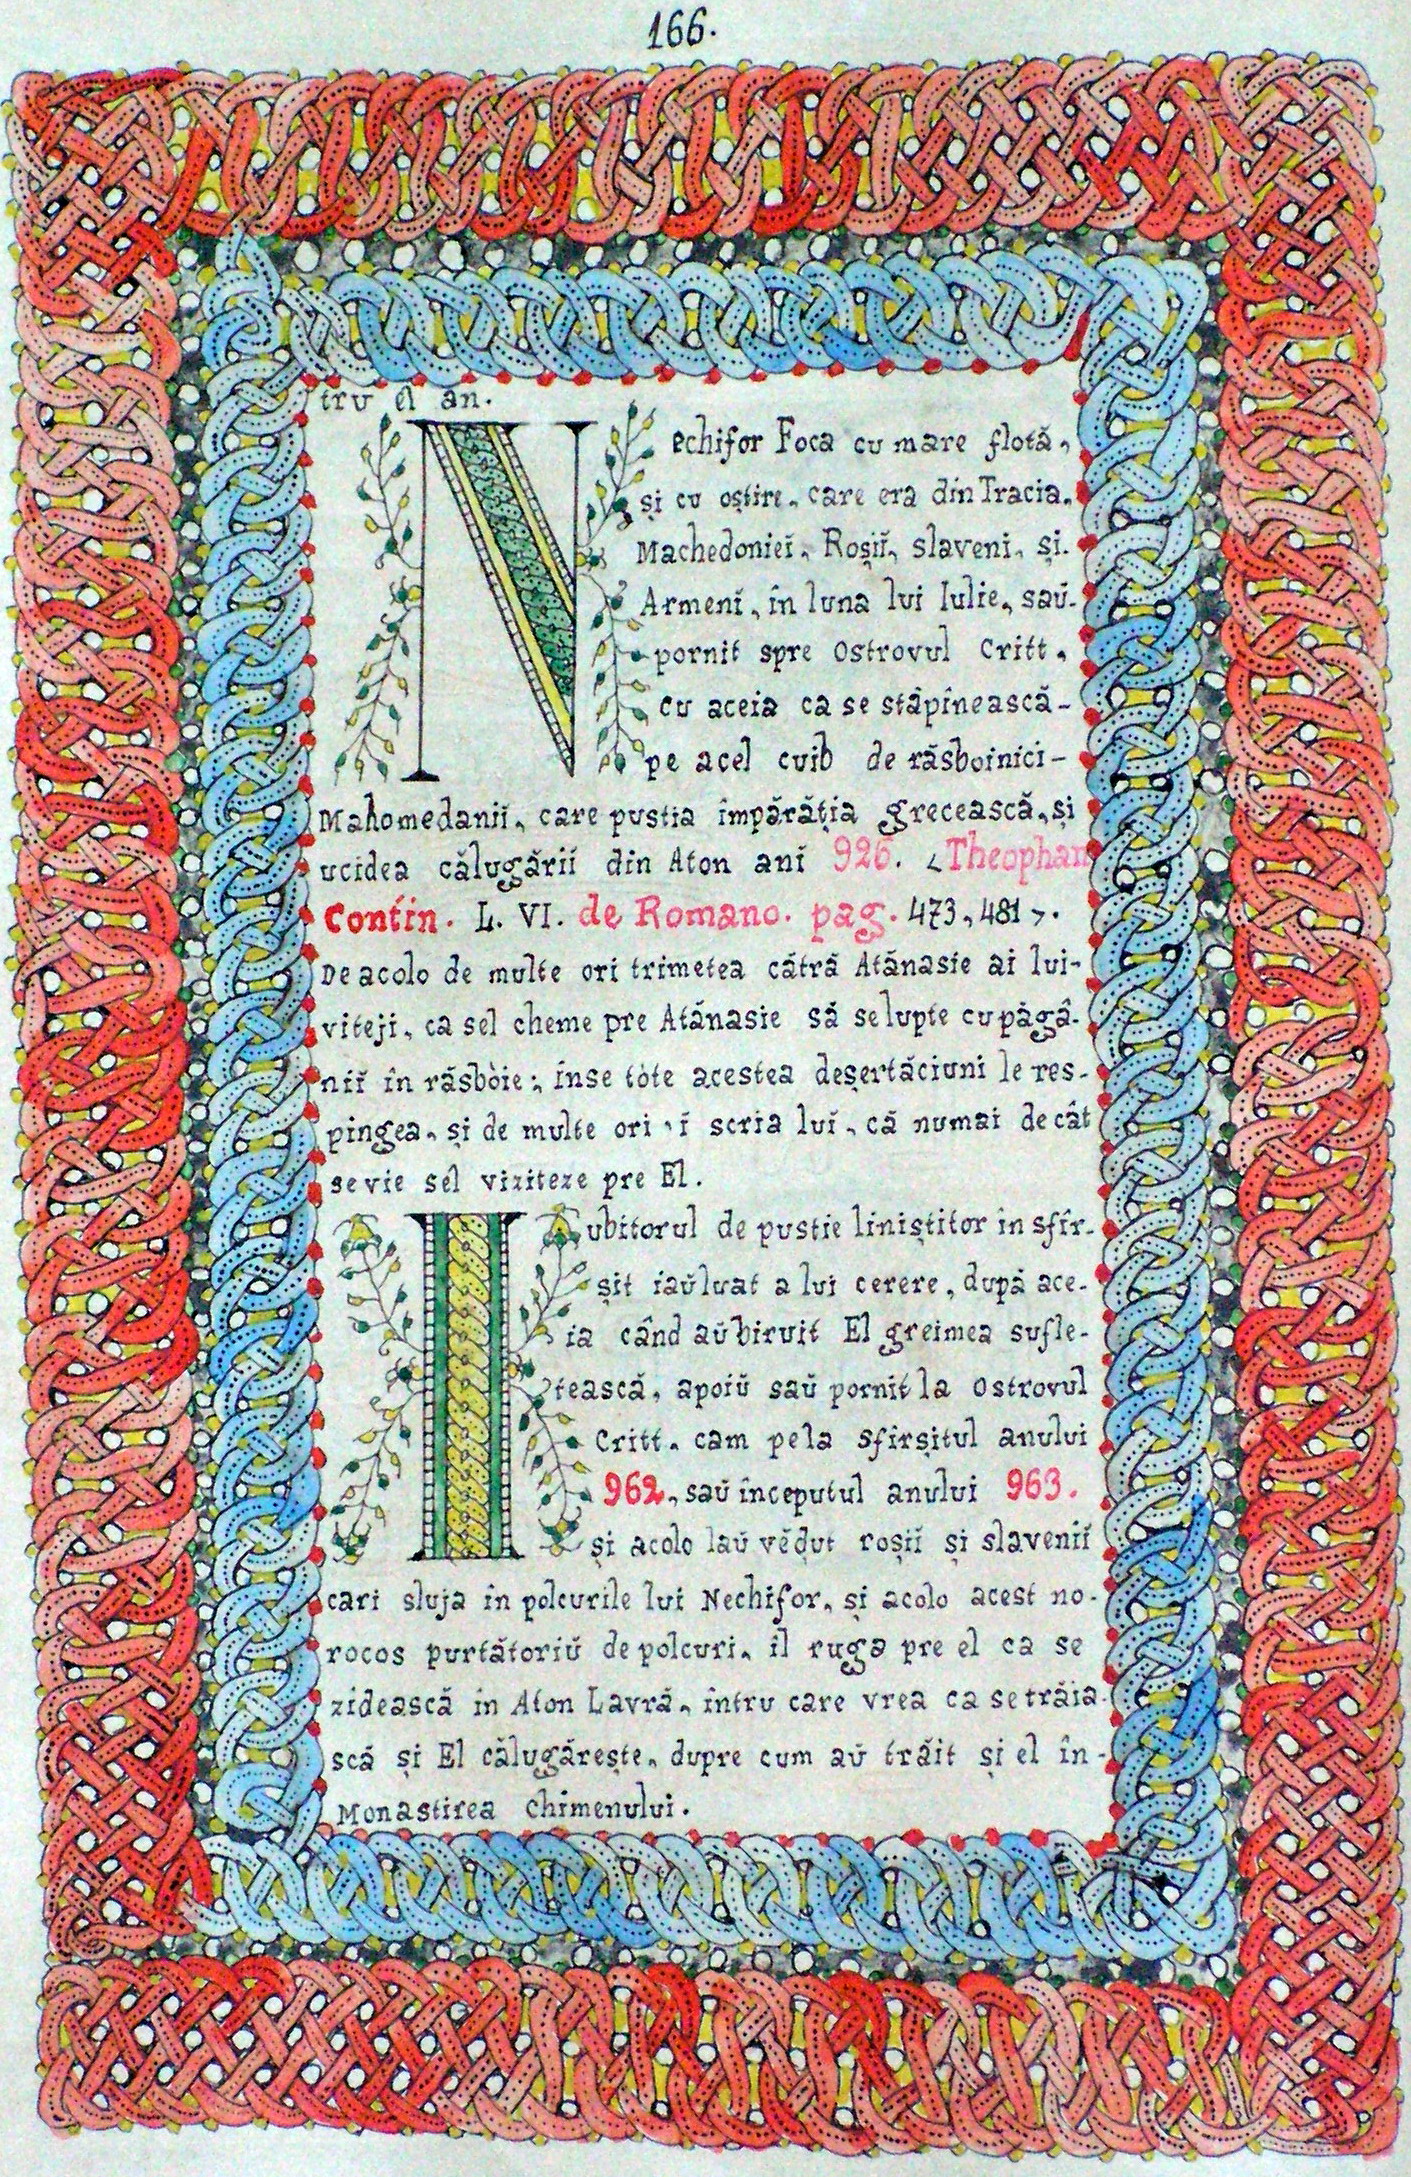 166.
tru el an.
Nechifor Foca cu mare flotă,
și cu oștire, care era din Tracia,
Machedoniei, Roșiĭ, slaveni, și
Armenĭ, în luna lui Iulie, saŭ
pornit spre Ostrovul Critt,
cu aceia ca se stăpînească-
pe acel cuib de răsboinici-
Mahomedaniĭ, care pustia împărăția grecească, și
ucidea călugăriĭ din Aton anĭ 926. <Theophan
Contin. L. VI. de Romano. pag. 473, 481>.
De acolo de multe ori trimetea cătră Atănasie ai lui-
viteji, ca sel cheme pre Atănasie să se lupte cu păgâ-
niĭ în răsbòie; înse tòte acestea deșertăciuni le res-
pingea, și de multe ori ĭ scria luĭ, că numai de cât
se vie sel viziteze pre El.
Iubitorul de pustie liniștitor in sfîr-
șit iaŭ luat a lui cerere, după ace-
ia când aŭ biruit El greimea sufle-
tească, apoiŭ saŭ pornit la Ostrovul
Critt, cam pe la sfirșitul anului
962, saŭ începutul anului 963.
și acolo laŭ vĕḑut roșiĭ și slaveniĭ
cari sluja în polcurile lui Nechifor, și acolo acest no-
rocos purtătoriŭ de polcuri, il ruga pre el ca se
zidească in Aton Lavră, întru care vrea ca se trăia-
scă și El călugărește, dupre cum aŭ trăit și el în-
Monastirea Chimenului.